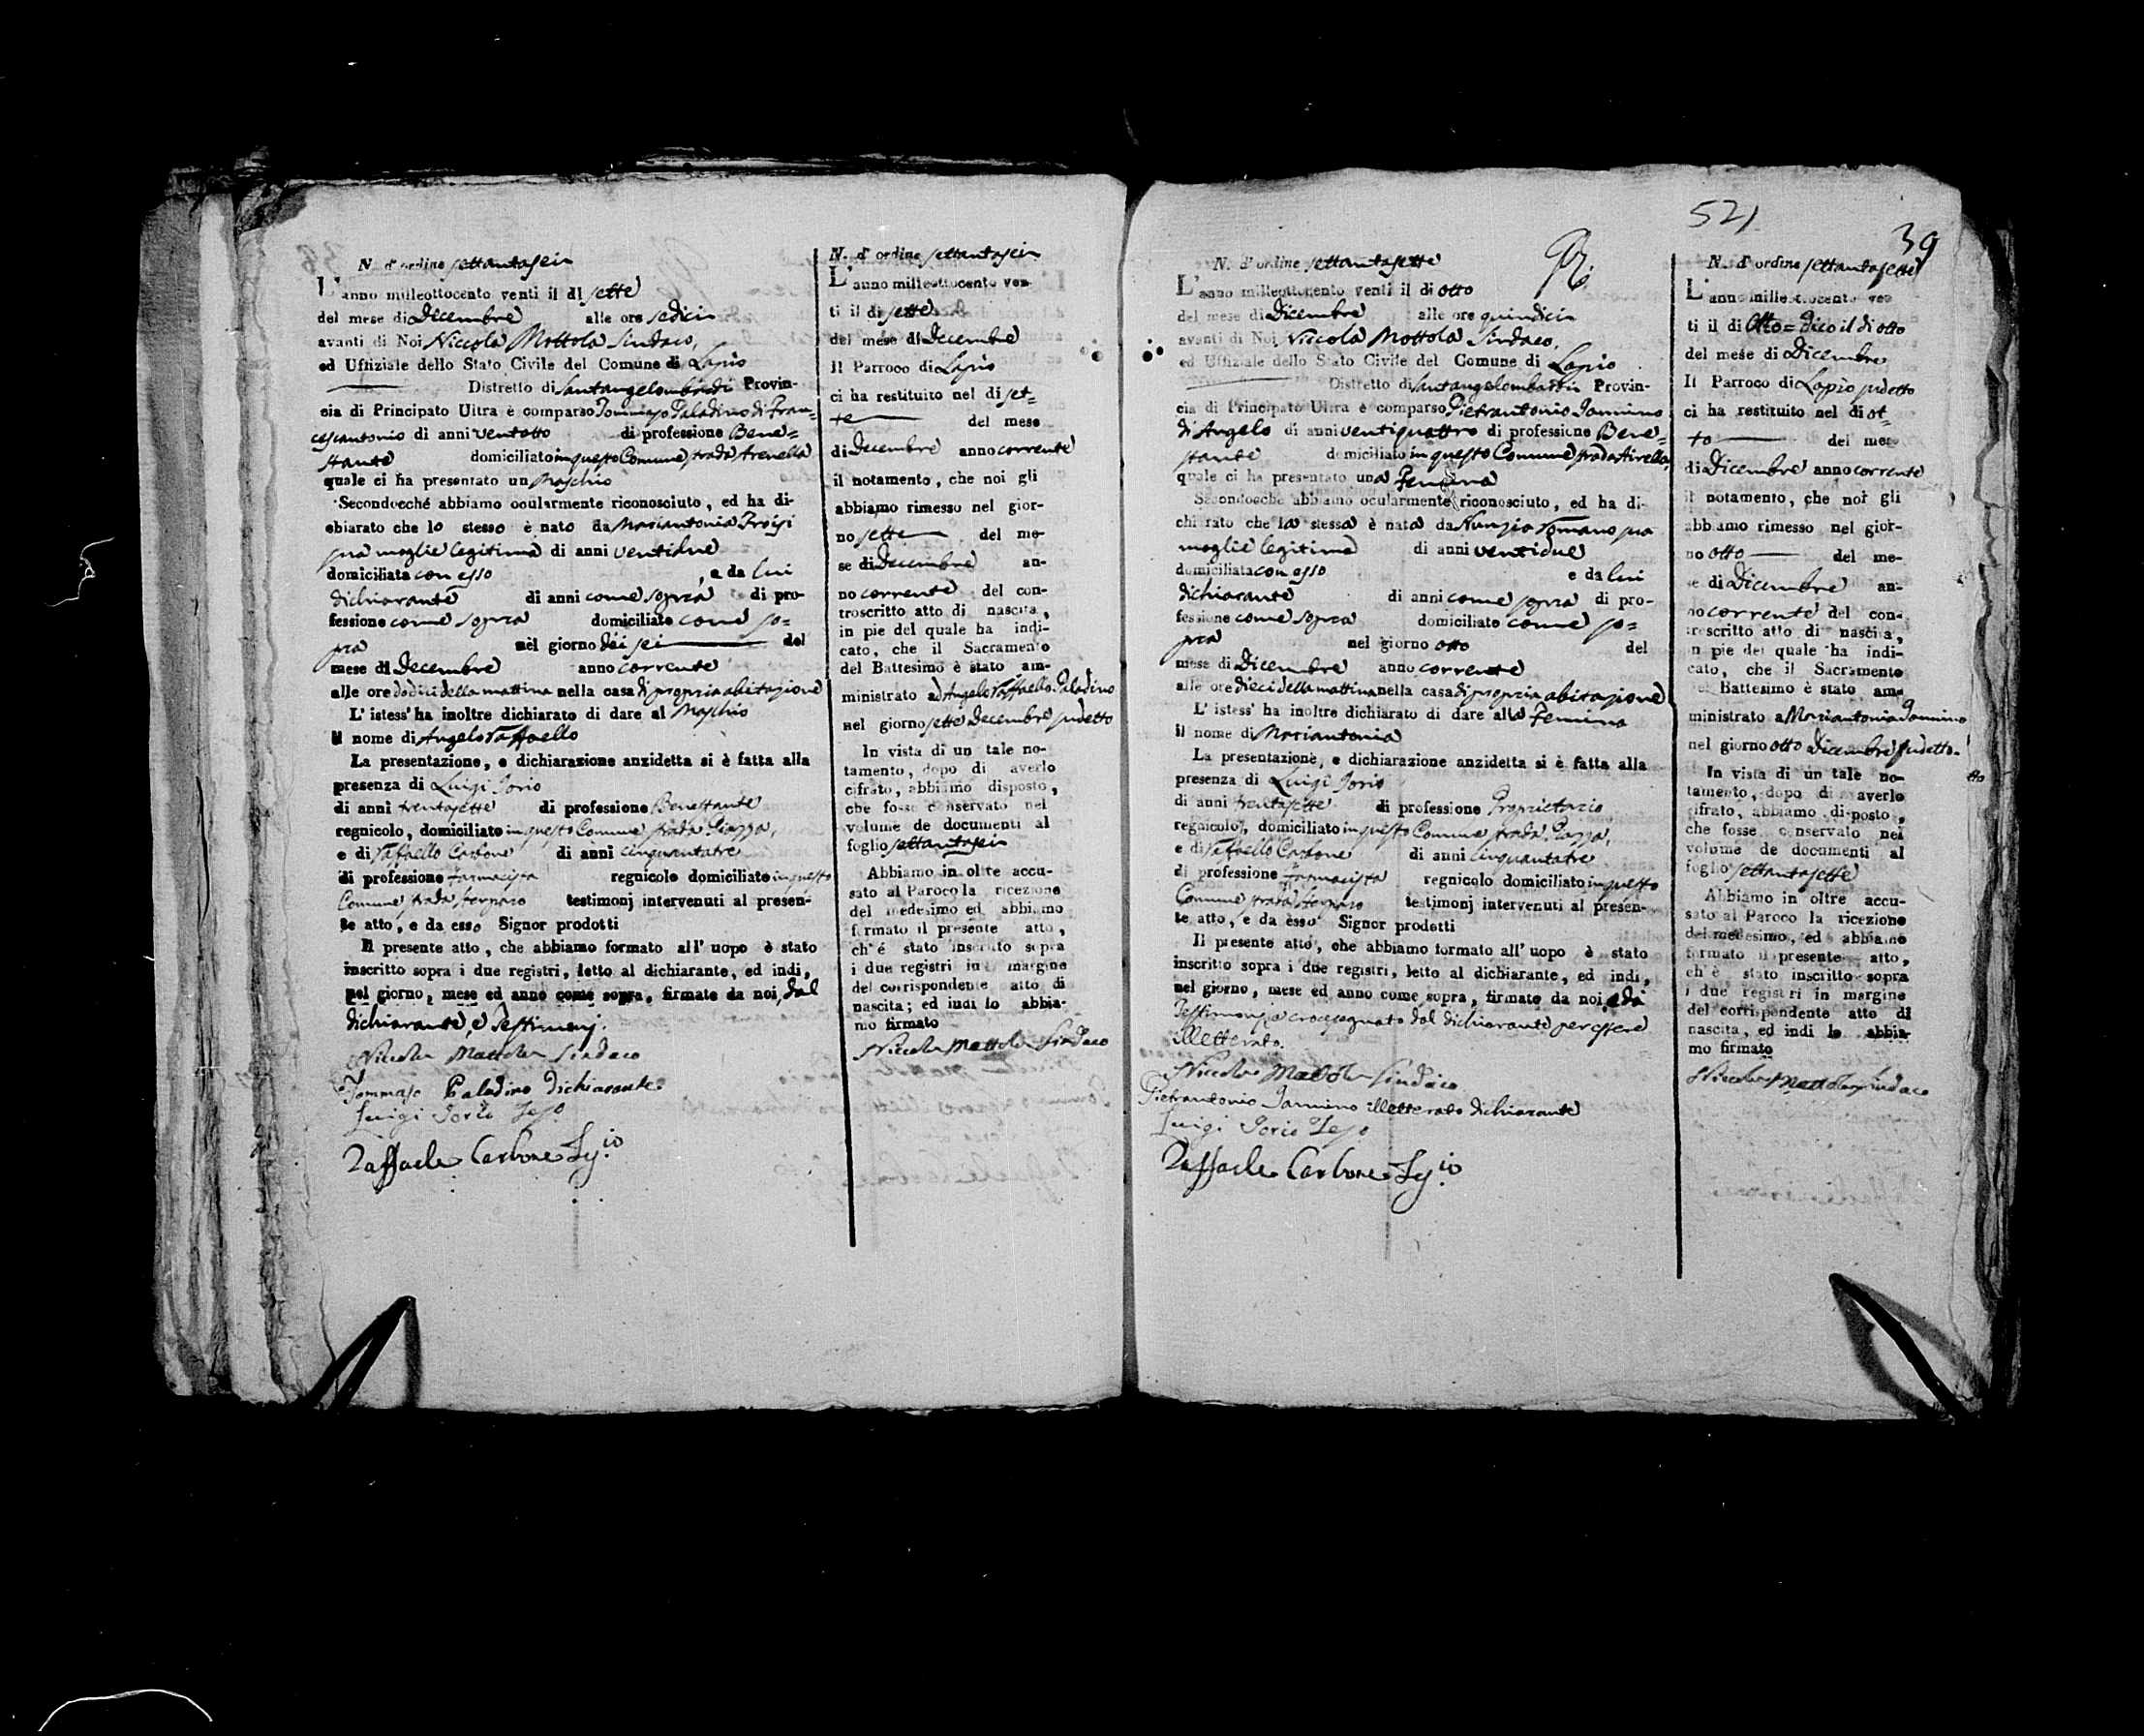 N. d'ordine settantasei
L'anno milleottocento venti il dì sette
del mese di Decembre alle ore sedici
avanti di Noi Niccola Mottola Sindaco,
ed Uffiziale dello Stato Civile del Comune di Lapio
Distretto di Santangelombardi Provin-
cia di Principato Ultra è comparso Tommaso Paladino di Fran-
cescantonio di anni ventotto di professione Bene=
stante domiciliato in questo Comune, strada Arenella
quale ci ha presentato un Maschio
Secondocché abbiamo ocularmente riconosciuto, ed ha di-
chiarato che lo stesso è nato da Mariantonia Troisi
sua moglie legitima di anni ventidue
domiciliata con esso e da lui
dichiarante di anni come sopra di pro-
fessione come sopra domiciliato come so=
pra nel giorno dei sei del
mese di Decembre anno corrente
alle ore dodici della mattina nella casa di propria abitazione
L'istess' ha inoltre dichiarato di dare al Maschio
il nome di Angelo Raffaello
La presentazione, e dichiarazione anzidetta si è fatta alla
presenza di Luigi Iorio
di anni trentasette di professione Benestante
regnicolo, domiciliato in questo Comune strada Piazza,
e di Raffaello Carbone di anni cinquantatre
di professione Farmacista regnicolo domiciliato in questo
Comune, strada testimonj intervenuti al presen-
te atto, e da esso Signor prodotti
Il presente atto, che abbiamo formato all' uopo è stato
inscritto sopra i due registri, letto al dichiarante, ed indi,
nel giorno, mese ed anno come sopra, firmato da noi, dal
dichiarante, e Testimonj.
Niccola Mottola Sindaco
Tommaso Paladino Dichiarante
Luigi Iorio
Raffaele Carbone
N. d'ordine settantasei
L'anno milleottocento ven-
ti il dì sette
del mese di Decembre
Il Parroco di Lapio
ci ha restituito nel dì set=
te del mese
di Decembre anno corrente
il notamento, che noi gli
abbiamo rimesso nel gior-
no sette del me-
se di Decembre an-
no corrente del con-
troscritto atto di nascita,
in pie del quale ha indi-
cato, che il Sacramento
del Battesimo è stato am-
ministrato ad Angelo Raffaello Paladino
nel giorno sette Decembre sudetto
In vista di un tale no-
tamento, dopo di averlo
cifrato, abbiamo disposto,
che fosse conservato nel
volume de documenti al
foglio settantasei
Abbiamo in oltre accu-
sato al Paroco la ricezione
del medesimo ed abbiamo
formato il presente atto,
ch'é stato inscritto sopra
i due registri in margine
del corrispondente atto di
nascita; ed indi lo abbia-
mo firmato
Niccola Mottola Sindaco
521
39
N. d'ordine settantasette
L'anno milleottocento venti il dì otto
del mese di Dicembre alle ore quindici
avanti di Noi Niccola Mottola Sindaco,
ed Uffiziale dello Stato Civile del Comune di Lapio
Distretto di Santangelombardi Provin-
cia di Principato Ultra è comparso Pietrantonio Iannino
di Angelo di anni ventiquattro di professione Bene=
stante domiciliato in questo Comune strada Airella,
quale ci ha presentato una Femina
Secondocché abbiamo ocularmente riconosciuto, ed ha di-
chiarato che la stessa è nata da Nunzia Romano sua
moglie legitima di anni ventidue
domiciliata con esso e da lui
dichiarante di anni come sopra di pro-
fessione come sopra domiciliato come so=
pra nel giorno otto del
mese di Dicembre anno corrente
alle ore dieci della mattina nella casa di propria abitazione
L'istess' ha inoltre dichiarato di dare alla Femina
il nome di Mariantonia
La presentazione, e dichiarazione anzidetta si è fatta alla
presenza di Luigi Iorio
di anni trentasette di professione Proprietario
regnicolo, domiciliato in questo Comune strada Piazza,
e di Raffaello Carbone di anni cinquantatre
di professione Farmacista regnicolo domiciliato in questo
Comune strada testimonj intervenuti al presen-
te atto, e da esso Signor prodotti
Il presente atto, che abbiamo formato all' uopo è stato
inscritto sopra i due registri, letto al dichiarante, ed indi,
nel giorno, mese ed anno come sopra, firmato da noi, e da
Testimonj, e crocesegnato dal dichiarante per essere
illetterato.
Niccola Mottola Sindaco
Pietrantonio Iannino illetterato dichiarante
Luigi Iorio
Raffaele Carbone
N. d'ordine settantasette
L'anno milleottocento ven
ti il dì Otto= dico il dì otto
del mese di Dicembre
Il Parroco di Lapio sudetto
ci ha restituito nel dì ot=
to del mese
di Dicembre anno corrente
il notamento, che noi gli
abbiamo rimesso nel gior-
no otto del me-
se di Dicembre an-
no corrente del con-
troscritto atto di nascita,
in pie del quale ha indi-
cato, che il Sacramento
del Battesimo è stato am-
ministrato a Mariantonia Iannino
nel giorno otto Dicembre sudetto.
In vista di un tale no-
tamento, dopo di averlo
cifrato, abbiamo disposto,
che fosse conservato nel
volume de documenti al
foglio settantasette
Abbiamo in oltre accu-
sato al Paroco la ricezione
del medesimo, ed abbiamo
formato il presente atto,
ch'è stato inscritto sopra
i due registri in margine
del corrispondente atto di
nascita, ed indi lo abbia-
mo firmato
Niccola Mottola Sindaco